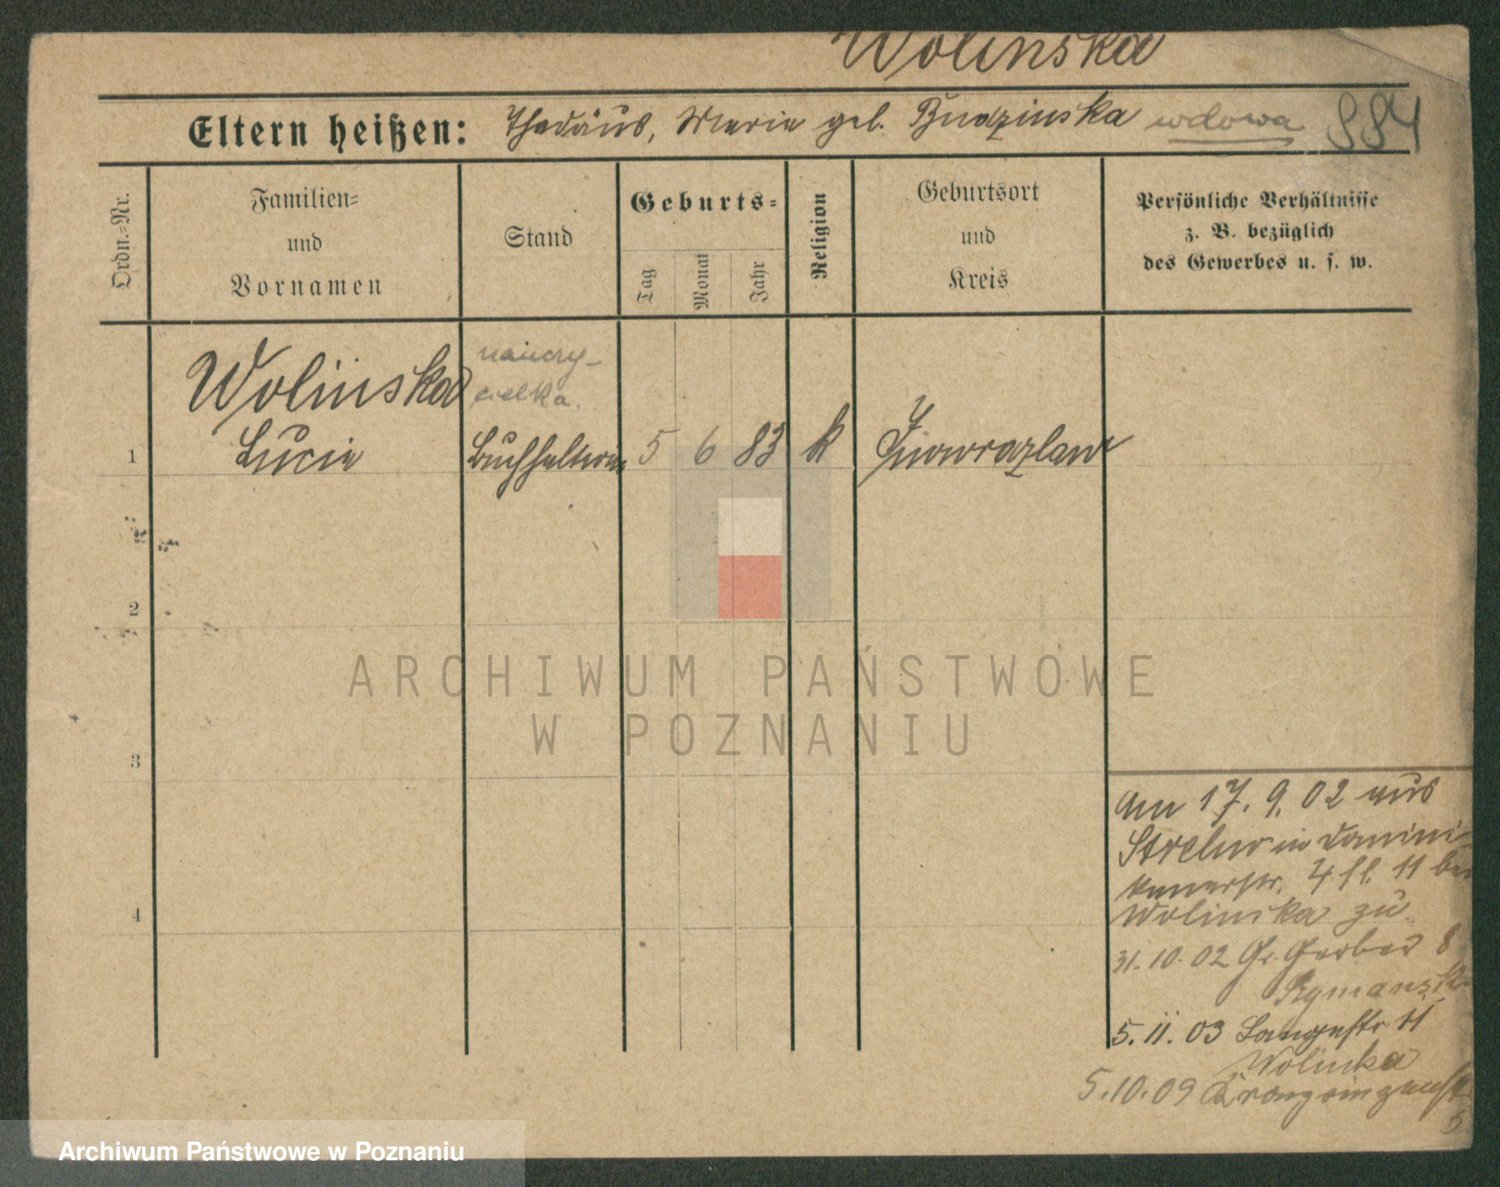 Wolinska
Eltern heißen: Thadäus, Marie geb. Budzinska wdowa 884
Ordn.-Nr.
Familien-
und
Vornamen
Stand
Geburts-
Tag
Monat
Jahr
Religion
Geburtsort
und
Kreis
Persönliche Verhältnisse
z. B. bezüglich
des Gewerbes u. s. w.
Wolinska nauczy-
cielka.
1 Lucie Buchhalterin 5 6 83 k Inowrazlaw
2
2
3
4
Am 17. 9. 02 aus
Strelno in Domini-
kanerstr. 4 II bei
Wolinska zu
31. 10. 02 Gr. Gerber 8
Szymanska
5. 11. 03 Langestr 11
Wolinska
5. 10. 09 Kronprinzenstr
5
ARCHIWUM PAŃSTWOWE
W POZNANIU
Archiwum Państwowe w Poznaniu